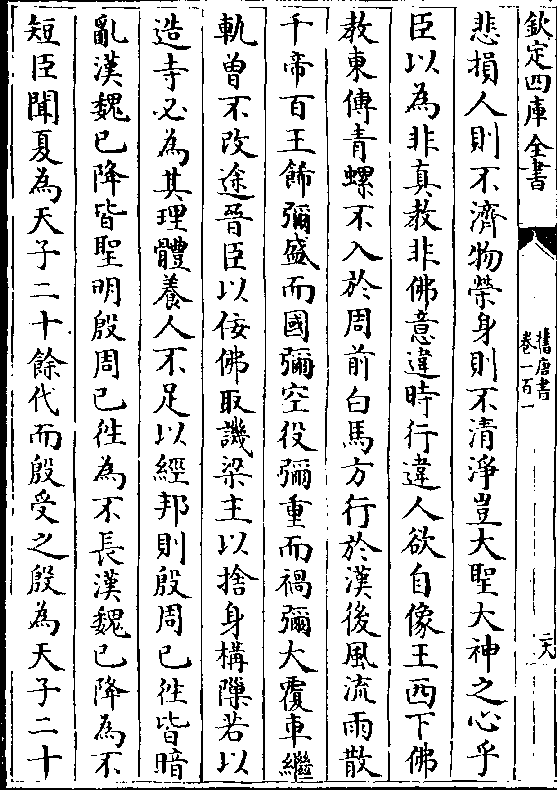 欽定四庫全書
舊唐書
卷一百一
二六
悲損人則不濟物榮身則不清淨豈大聖大神之心乎
臣以為非真教非佛意違時行違人欲自像王西下佛
教東傳青螺不入於周前白馬方行於漢後風流雨散
千帝百王飾彌盛而國彌空役彌重而禍彌大覆車繼
軌曾不改途晉臣以佞佛取譏梁主以捨身構隟若以
造寺必為其理體養人不足以經邦則殷周已往皆暗
亂漢魏已降皆聖明殷周已往為不長漢魏已降為不
短臣聞夏為天子二十餘代而殷受之殷為天子二十